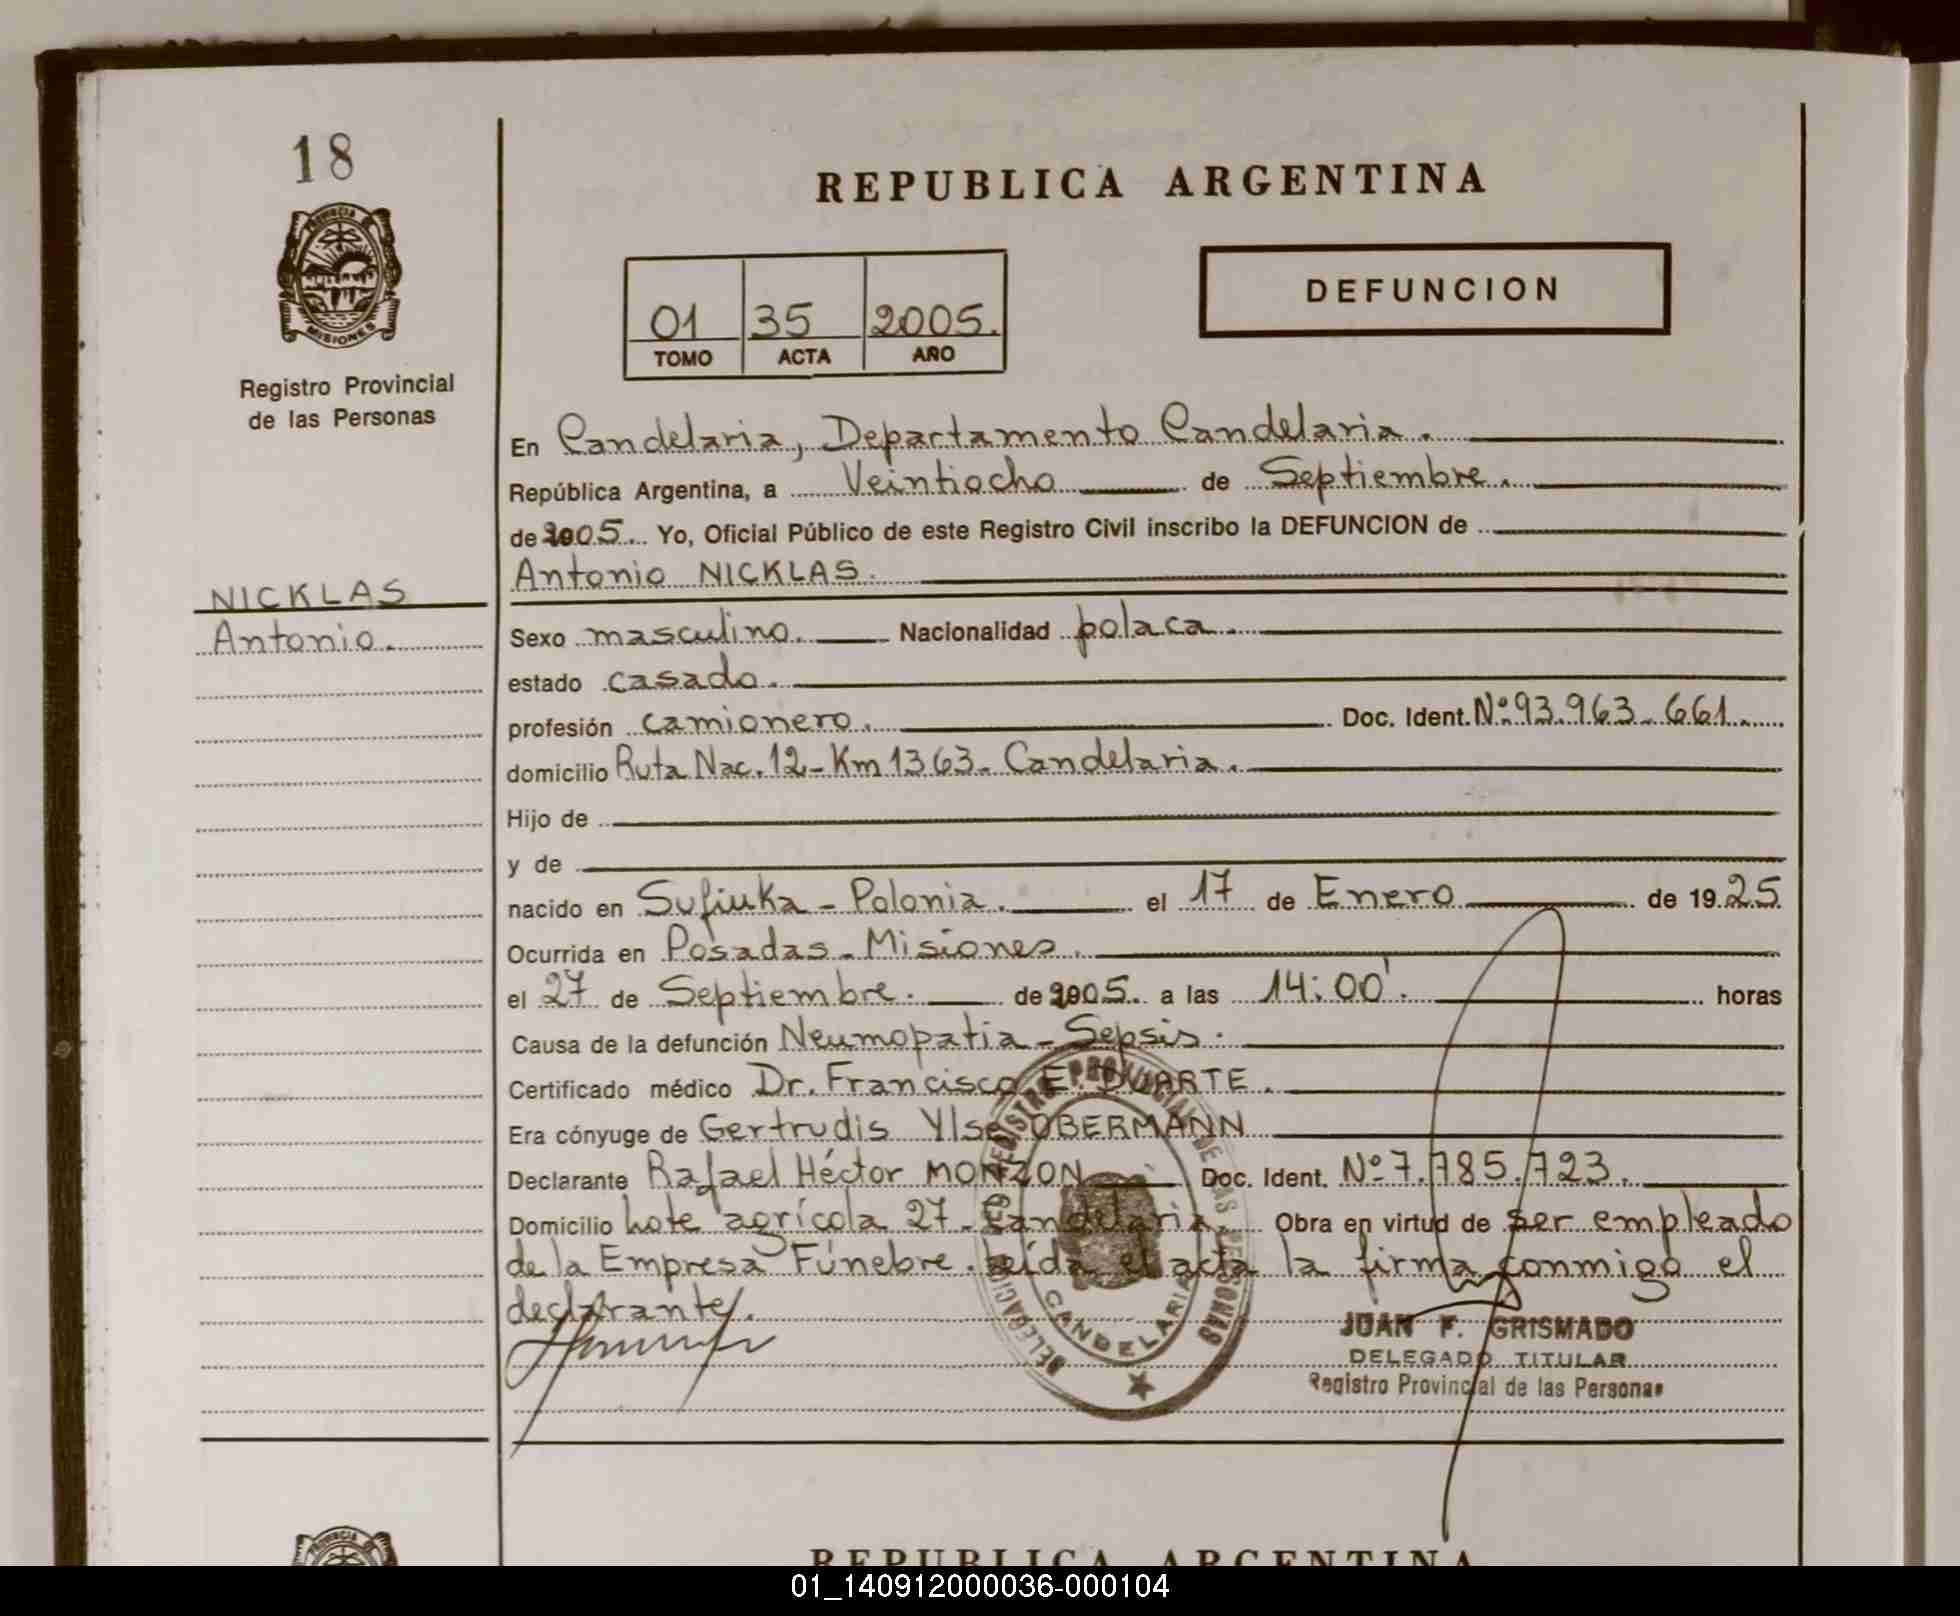 18
REPUBLICA ARGENTINA
PROVINCIA DE
MISIONES
DEFUNCION
01 35 2005.
TOMO ACTA AÑO
Registro Provincial
de las Personas
En Candelaria, Departamento Candelaria.
República Argentina, a Veintiocho de Septiembre.
de 2005. Yo, Oficial Público de este Registro Civil inscribo la DEFUNCION de
Antonio NICKLAS.
NICKLAS
Antonio.
Sexo masculino. Nacionalidad polaca.
estado casado.
profesión camionero. Doc. Ident. Nº 93.963.661.
domicilio Ruta Nac. 12-Km 1363. Candelaria.
Hijo de
y de
nacido en Sufiuka - Polonia. el 17 de Enero de 1925
Ocurrida en Posadas - Misiones.
el 27 de Septiembre. de 2005. a las 14:00'. horas
Causa de la defunción Neumopatia - Sepsis.
Certificado médico Dr. Francisco E. DUARTE.
Era cónyuge de Gertrudis Ylse OBERMANN
Declarante Rafael Héctor MONZON Doc. Ident. Nº 7.785.723.
Domicilio Lote agrícola 27. Candelaria. Obra en virtud de ser empleado
de la Empresa Fúnebre. Leída el acta la firma conmigo el
declarante.
DELEGACION REGISTRO PROVINCIAL DE LAS PERSONAS
CANDELARIA
JUAN F. GRISMADO
DELEGADO TITULAR
Registro Provincial de las Personas
REPUBLICA ARGENTINA
01_140912000036-000104